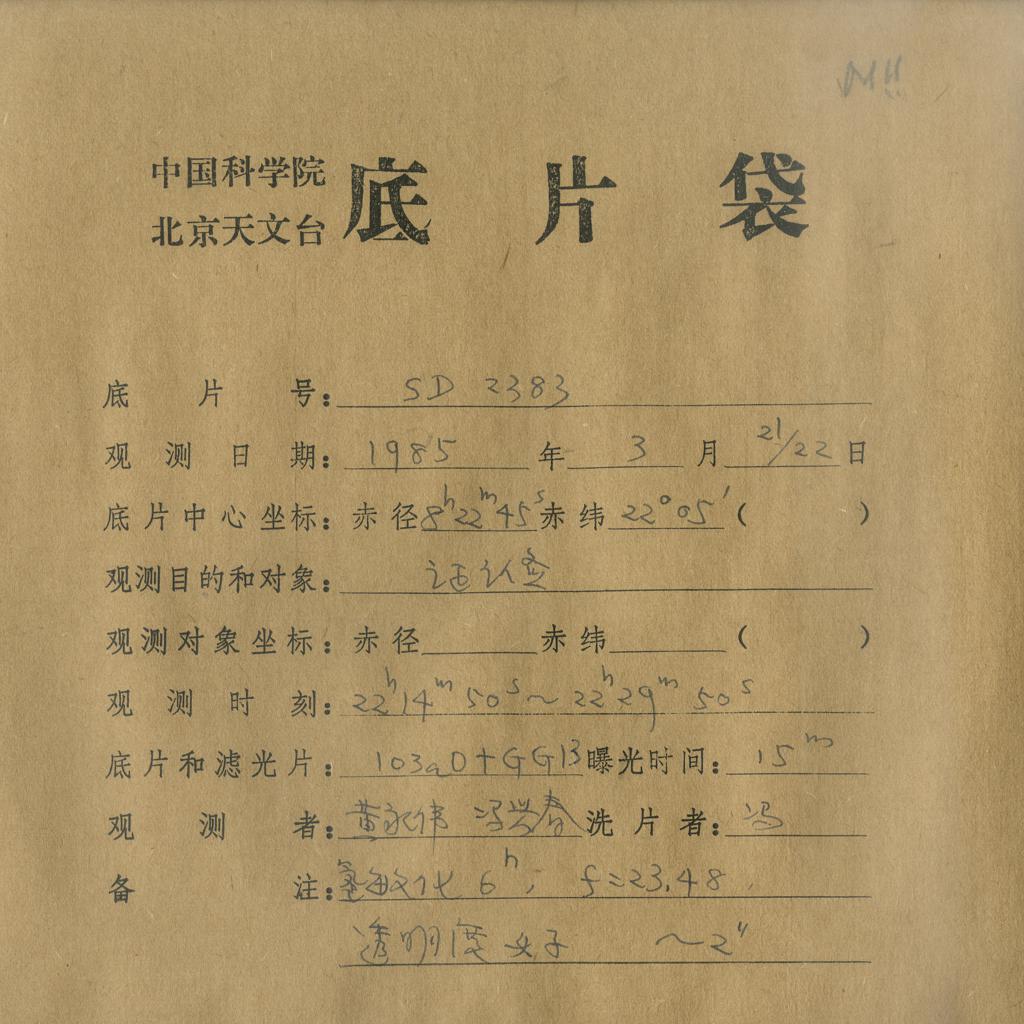 中国科学院
北京天文台
底片袋
底片号: SD 2383
观测日期: 1985 年 3 月 21/22 日
底片中心坐标: 赤径 8h22m45s 赤纬 22°05′ ( )
观测目的和对象: 证认
观测对象坐标: 赤径 赤纬 ( )
观测时刻: 22h14m50s~22h29m50s
底片和滤光片: 103aD+GG13 曝光时间: 15m
观测者: 黄永伟 冯兴春 洗片者: 冯
备注: 敏化 6h, f=23.48
透明度好 ~2″